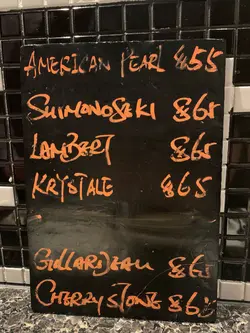 AMERICAN PEARL $55
SHIMONOSEKI $65
LAMBERT $65
KRYSTALE $65
GILLARDEAU $65
CHERRYSTONE $65